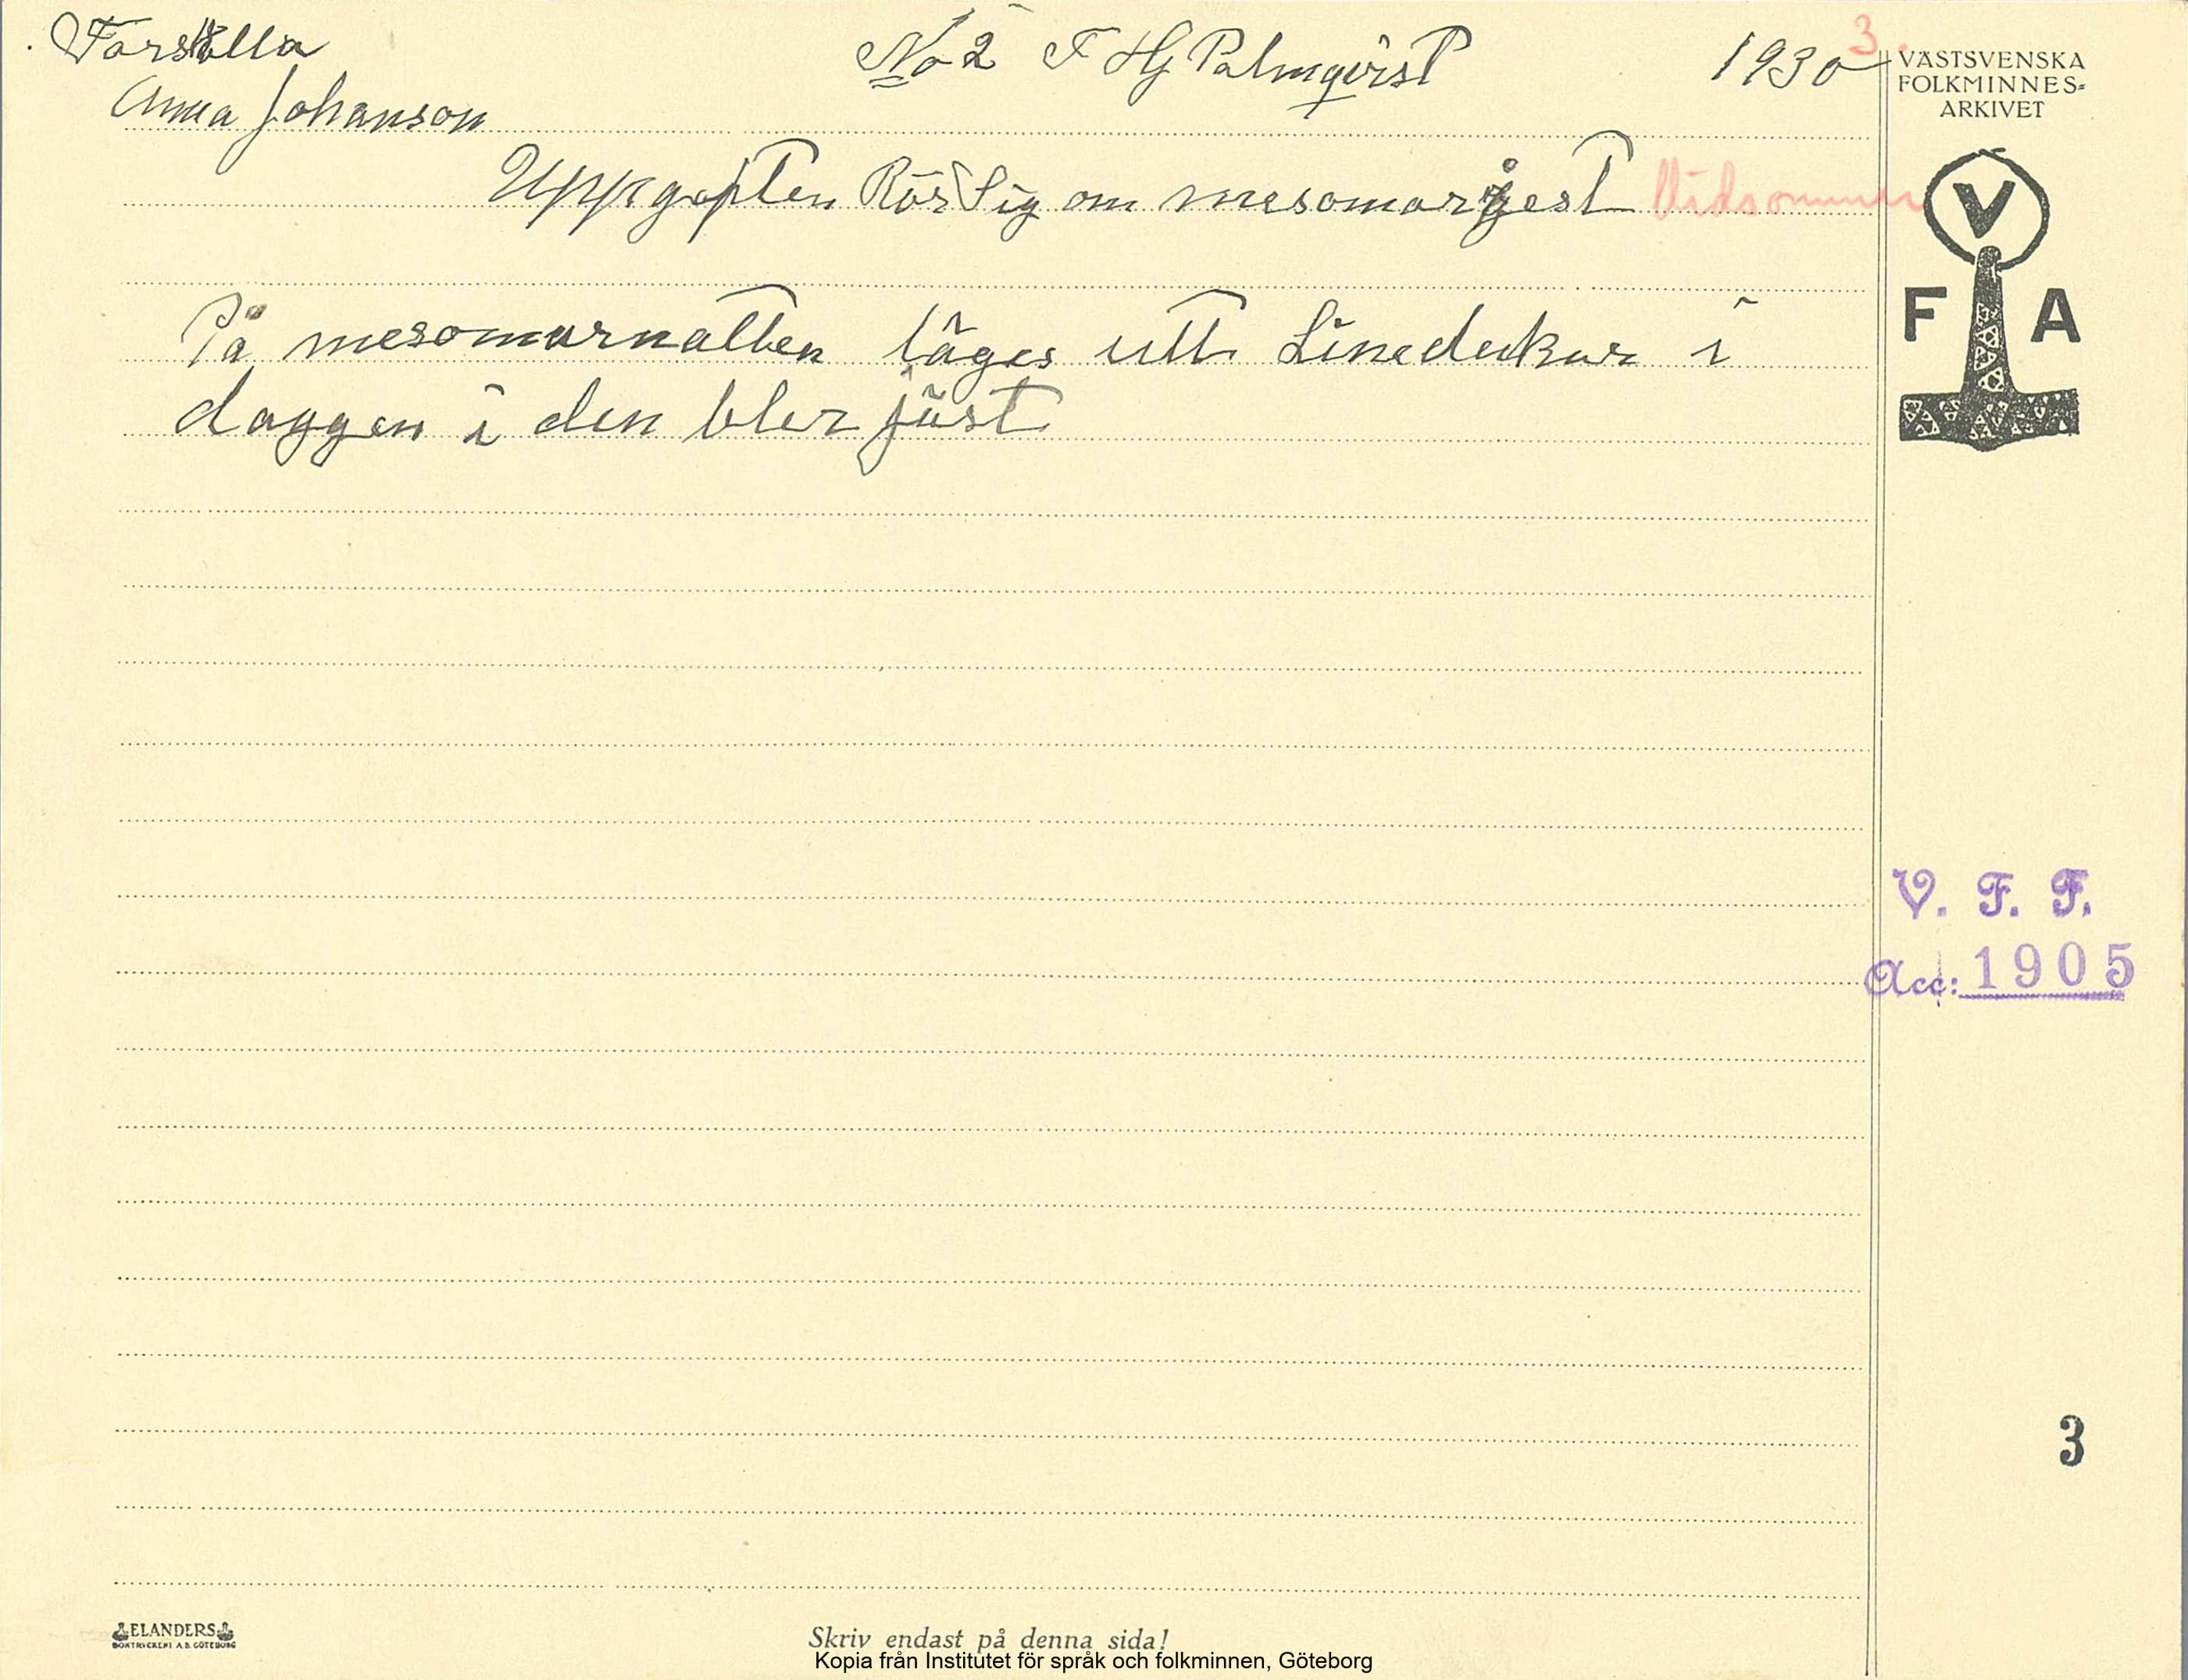 Forstlla No 2 F Hj Palmqvist 1930 3.
Anna Johanson
Uppgoften Rör Sig om mesomar jest Midsommar
På mesomarnatten läges utt Linedukar i
daggen i den bler jäst
VÄSTSVENSKA
FOLKMINNES=
ARKIVET
V
F A
V. F. F.
Acc: 1905
3
ELANDERS
BOKTRYCKERI A.B. GÖTEBORG
Skriv endast på denna sida!
Kopia från Institutet för språk och folkminnen, Göteborg